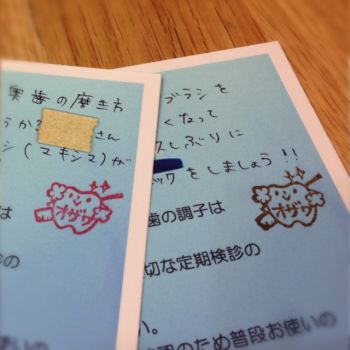 奥歯の磨き方
さん
(マキシマ)が
オザワ
は
の
ブラシを
くなって
しぶりに
ックをしましょう!!
オザワ
歯の調子は
切な定期検診の
い。
のため普段お使いの